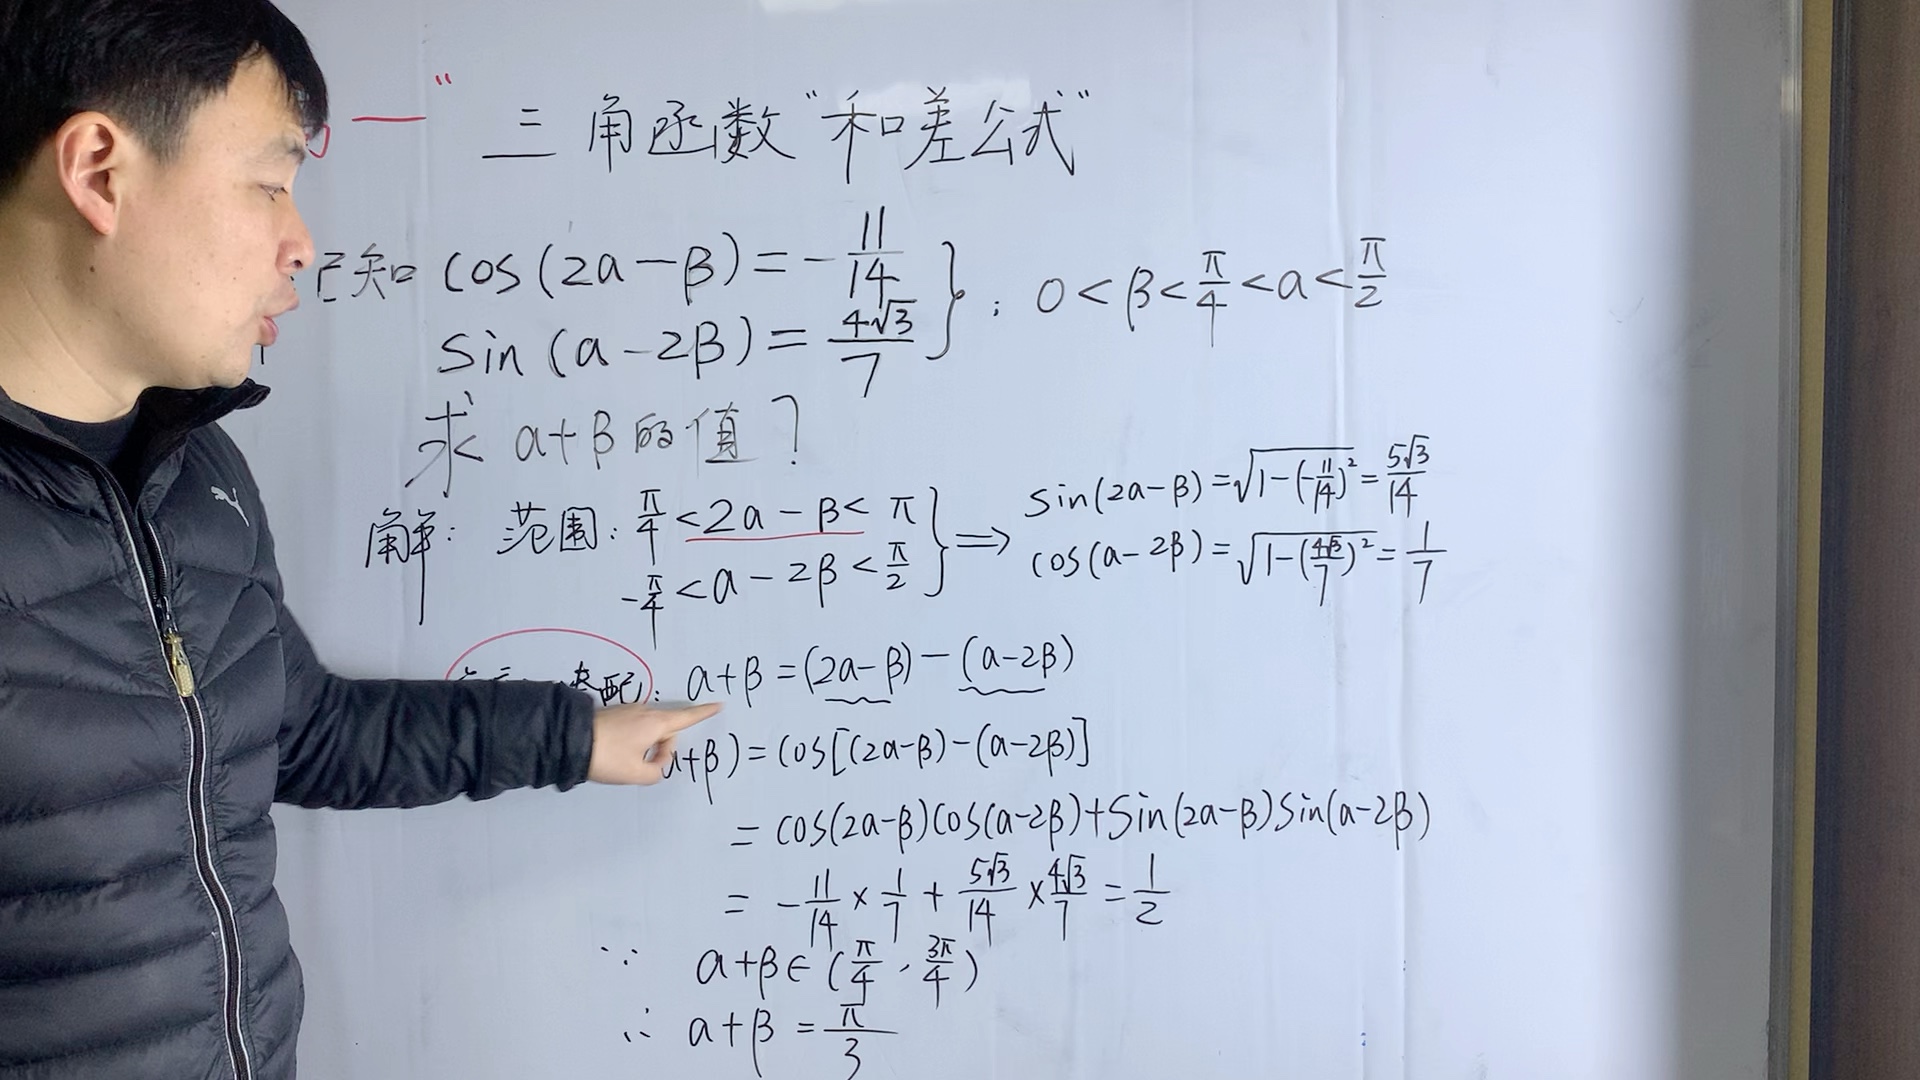 一" 三角函数"和差公式"
已知 cos(2a-β)=-11/14 } ; 0<β<π/4<a<π/2
sin(a-2β)=4√3/7
求 a+β的值?
解: 范围: π/4<2a-β<π } ⇒ sin(2a-β)=√(1-(-11/14)²)=5√3/14
-π/4<a-2β<π/2 cos(a-2β)=√(1-(4√3/7)²)=1/7
配: a+β=(2a-β)-(a-2β)
a+β)=cos[(2a-β)-(a-2β)]
=cos(2a-β)cos(a-2β)+Sin(2a-β)Sin(a-2β)
=-11/14×1/7+5√3/14×4√3/7=1/2
∵ a+β∈(π/4,3π/4)
∴ a+β=π/3